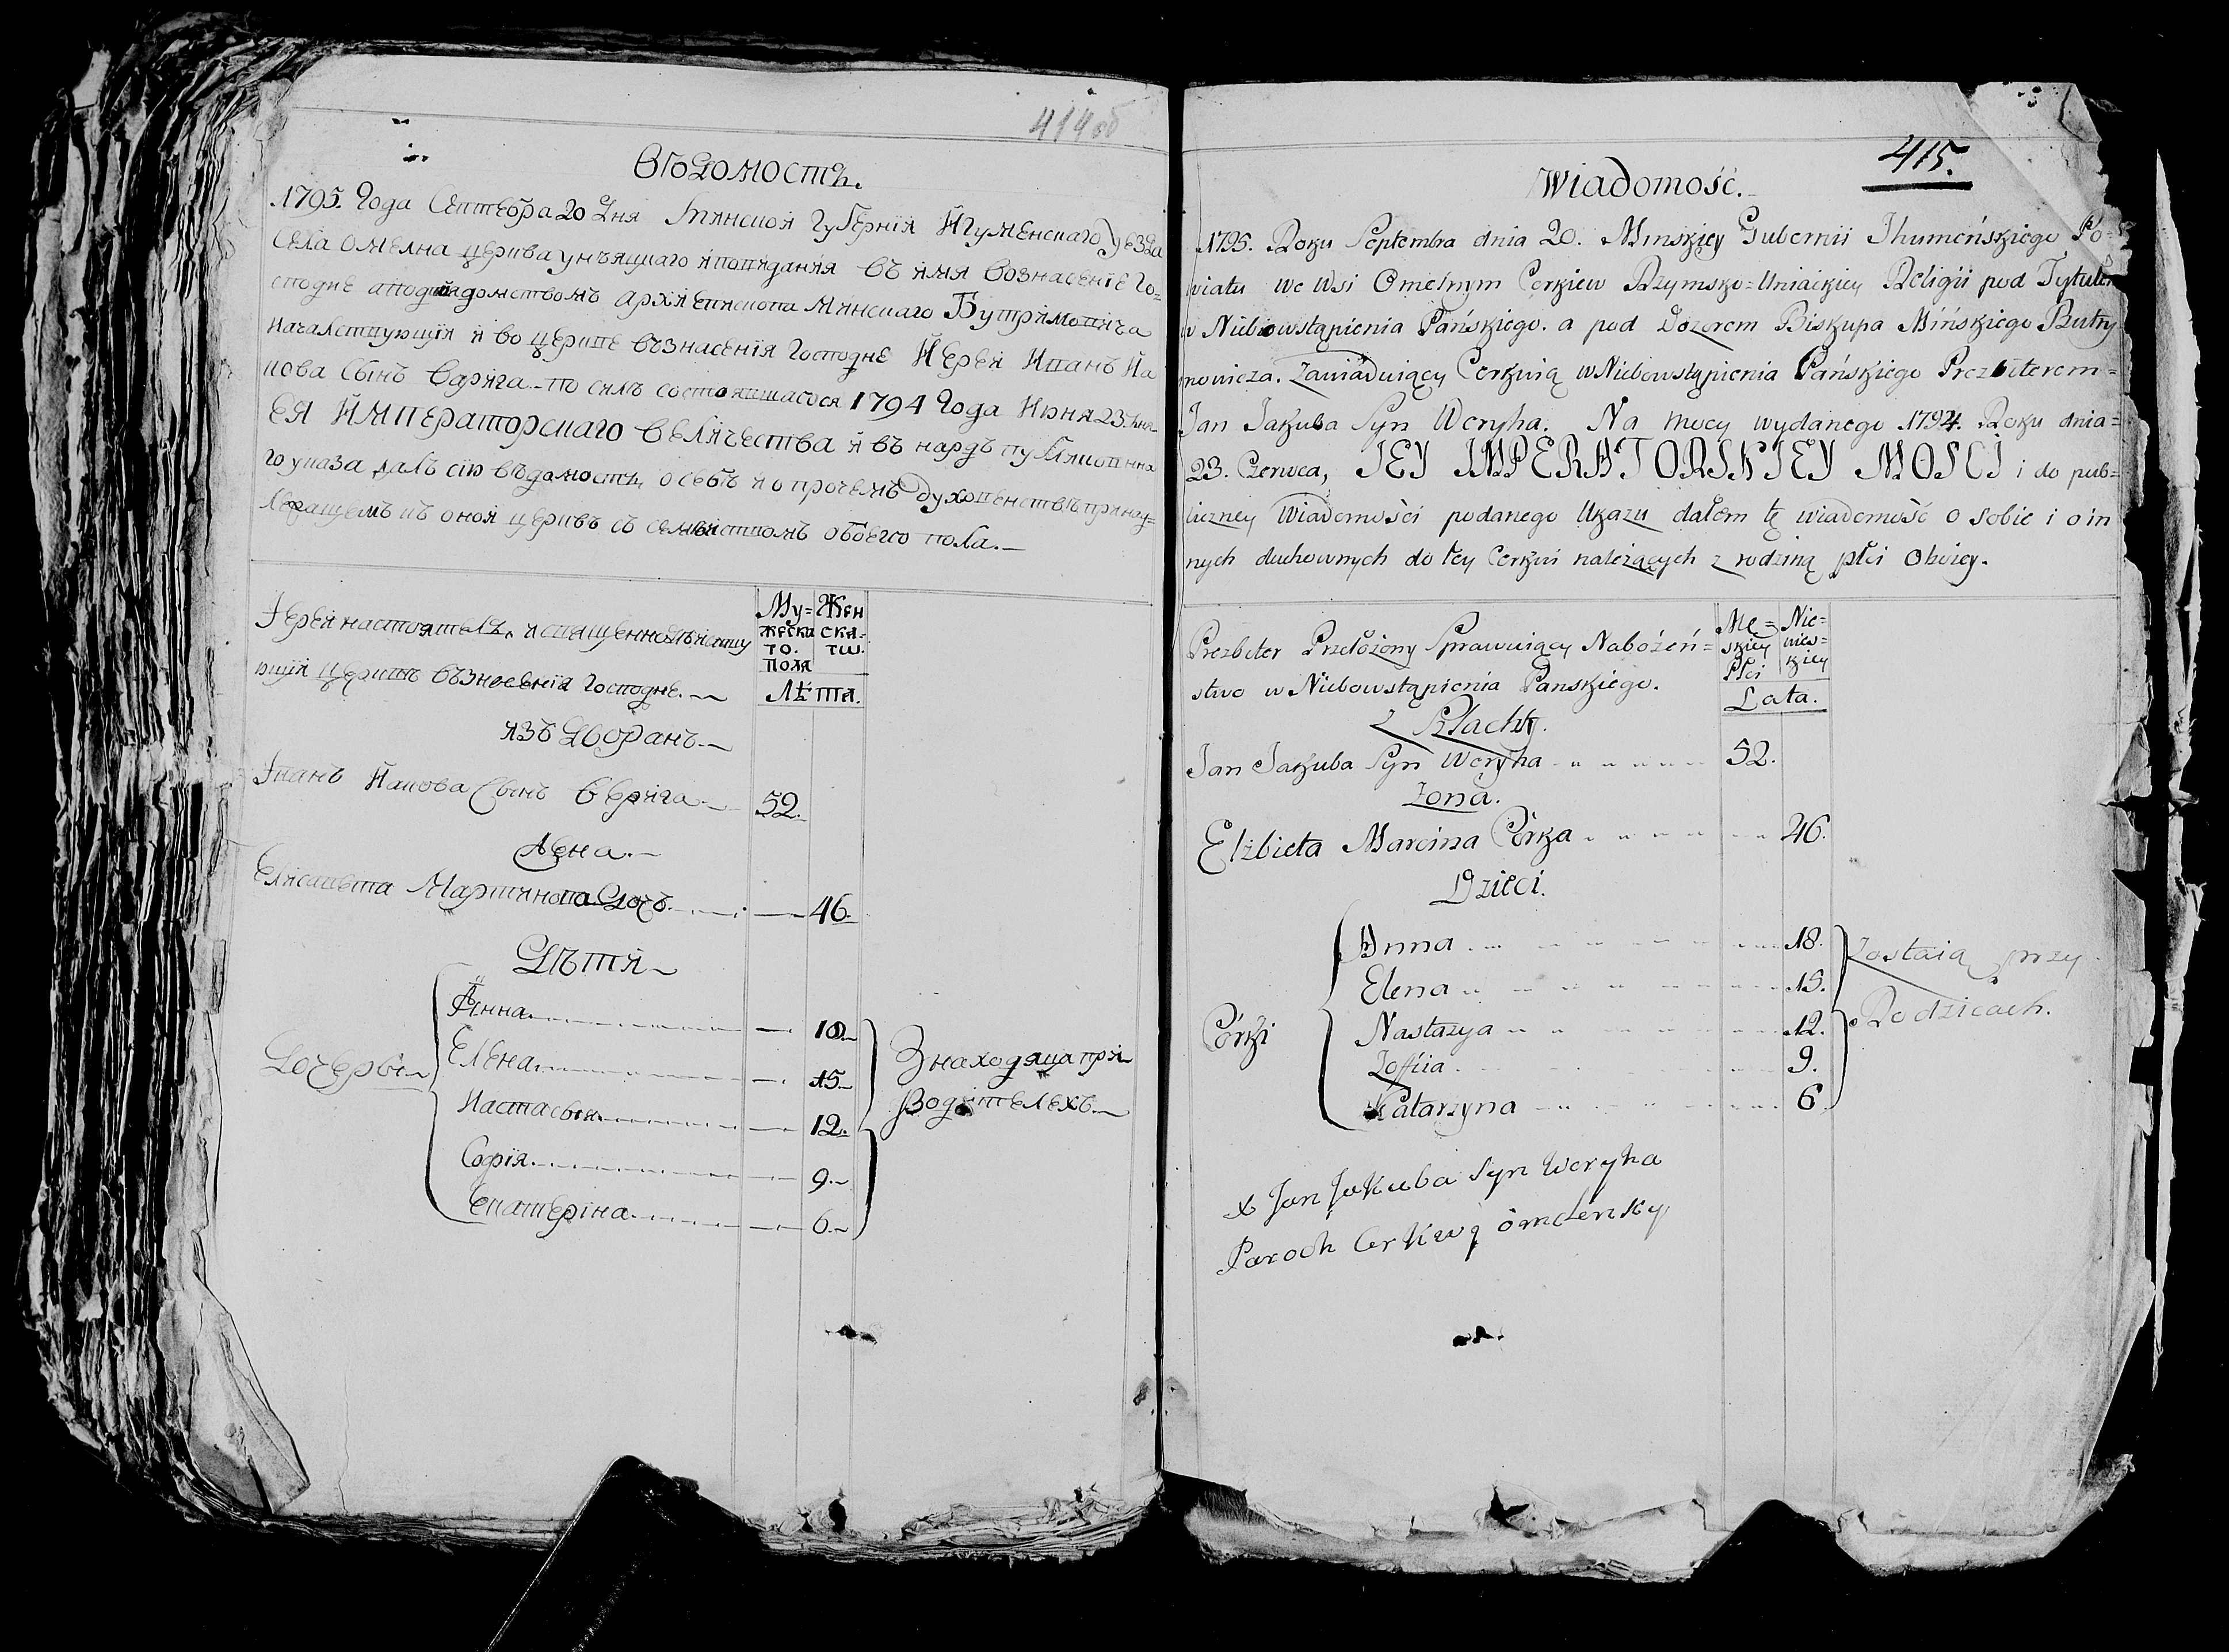 414об
Вѣдомость.
.1795. Года Септебра 20 Дня Минской Губернїи Игуменскаго уезда
Села Омелна церква унѣяцкаго исповѣданїя въ имя Вознасенїе Го=
сподне а под ведомством Архїепископа Минскаго Бутримовича
началствующїй и во церкве възнасенїя Господне Иерей Иванъ Яа
кова Сынъ Верига. По силѣ состоявшагося 1794 Года Июня 23. дня
ЕЯ ИМПЕРАТОРСКАГО ВЕЛИЧЕСТВА и въ нардъ публикованна
го указа далъ сїю вѣдомость, о себѣ и о прочемъ духовенствѣ принад=
лежащемъ къ оной церквѣ съ семействомъ обоего пола.
Іерей настоятель, и священнодѣйству
ющїй церкви възнесенїя Господне.
Му= Жен
жеска ска=
го. гω.
Пола
Лѣта.
изъ Дворанъ.
Іванъ Яакова Сынъ Верига. 52.
Жена.
Елисавета Мартинова Дочъ. 46.
Дѣти
Дочери
Анна 18.
Елена 15
Настасья 12.
Софїя. 9.
Екатерїна 6.
Знаходяца при
Родителехъ.
415.
Wiadomość.
.1795. Roku Septembra dnia 20. Minskiey Gubernii Jhumeńskiego Po=
wiatu we Wsi Omelnym Cerkiew Rzymsko=Uniackiey Religii pod Tytułem
w Niebowstąpienia Pańskiego. a pod Dozorem Biskupa Mińskiego Butry
mowicza. Zawiaduiący Cerkwią w Niebowstąpienia Pańskiego Prezbiterem=
Jan Jakuba Syn Weryha. Na mocy wydanego .1794. Roku dnia=
23. Czerwca, JEY IMPERATORSKIEY MOSCI i do pub=
liczney Wiadomości podanego Ukazu dałem tę wiadomość o sobie i o in
nych duchownych do tey Cerkwi należących z rodziną płci Oboiey.
Prezbiter Przełożony Sprawuiący Nabożeń=
stwo w Niebowstąpienia Panskiego.
Mę= Nie=
skiey wies=
Płci kiey
Lata.
z Szlachty.
Jan Jakuba Syn Weryha 52.
Żona.
Elżbieta Marcina Córka 46.
Dzieci.
Córki
Anna 18.
Elena 15.
Nastazya 12.
Zoffiia 9.
Katarzyna 6.
Zostaią przy
Rodzicach.
x Jan Jakuba Syn Weryha
Paroch Cerkwi omelensky